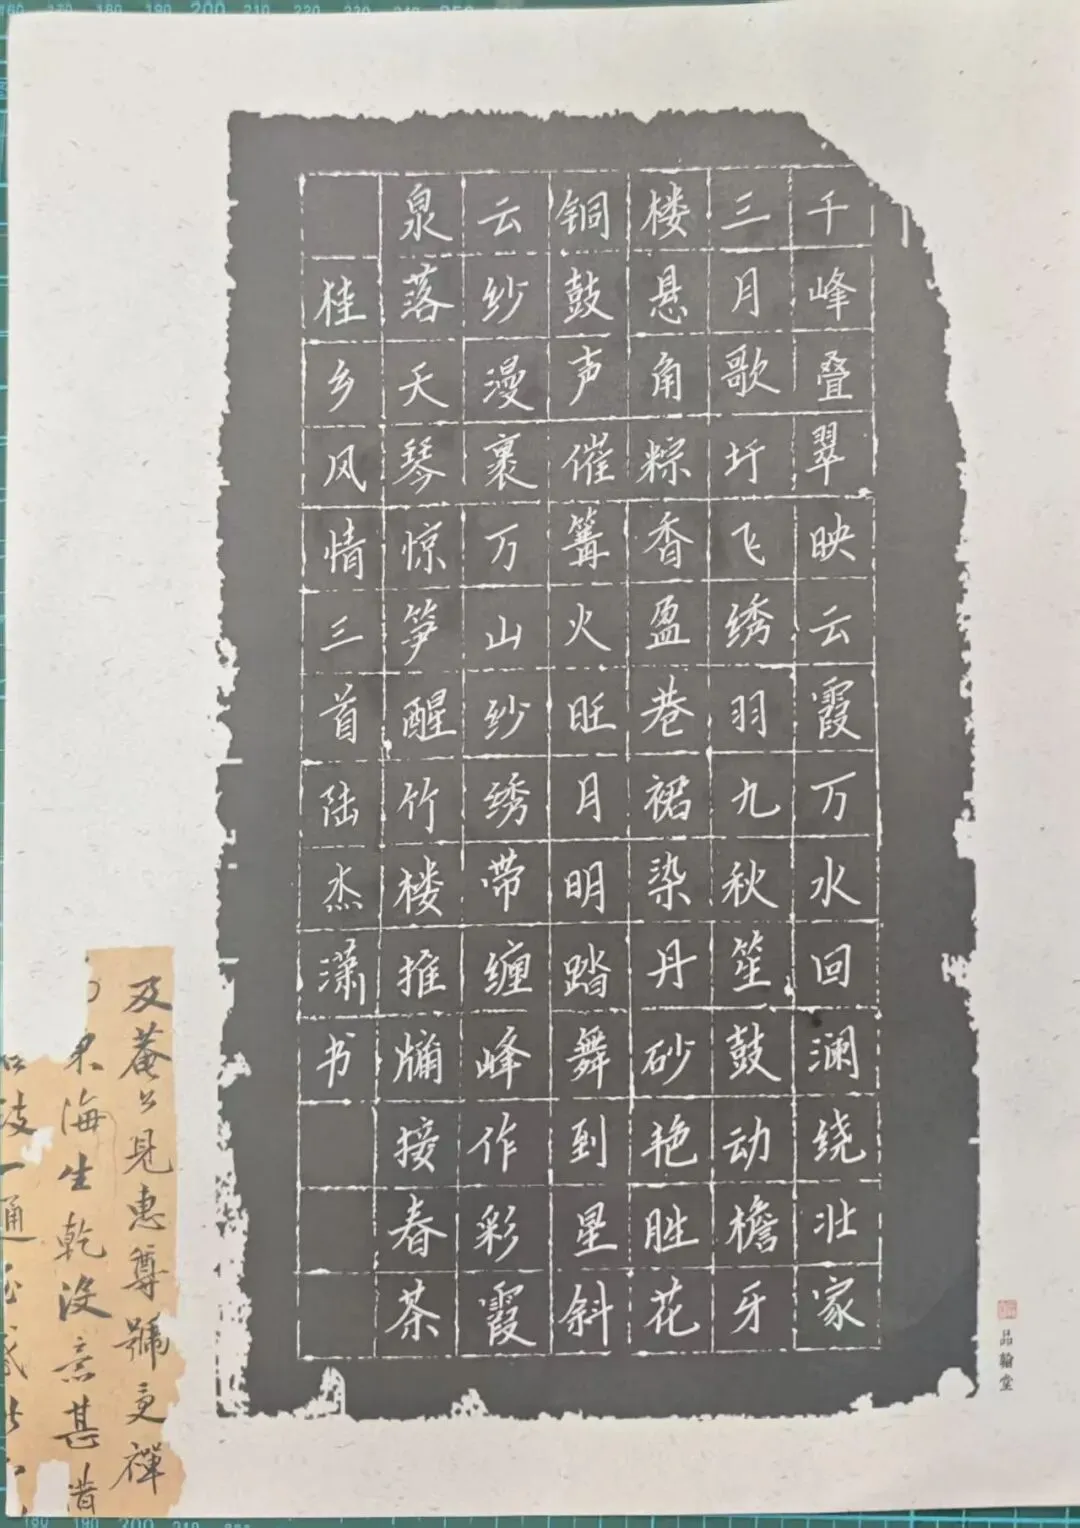 千峰叠翠映云霞万水回澜绕壮家
三月歌圩飞绣羽九秋笙鼓动檐牙
楼悬角粽香盈巷裙染丹砂艳胜花
铜鼓声催篝火旺月明踏舞到星斜
云纱漫裹万山纱绣带缠峰作彩霞
泉落天琴惊笋醒竹楼推牖接春茶
桂乡风情三首陆杰潇书
品翰堂
及菴公見惠尊號更禪
海生乾没焘甚